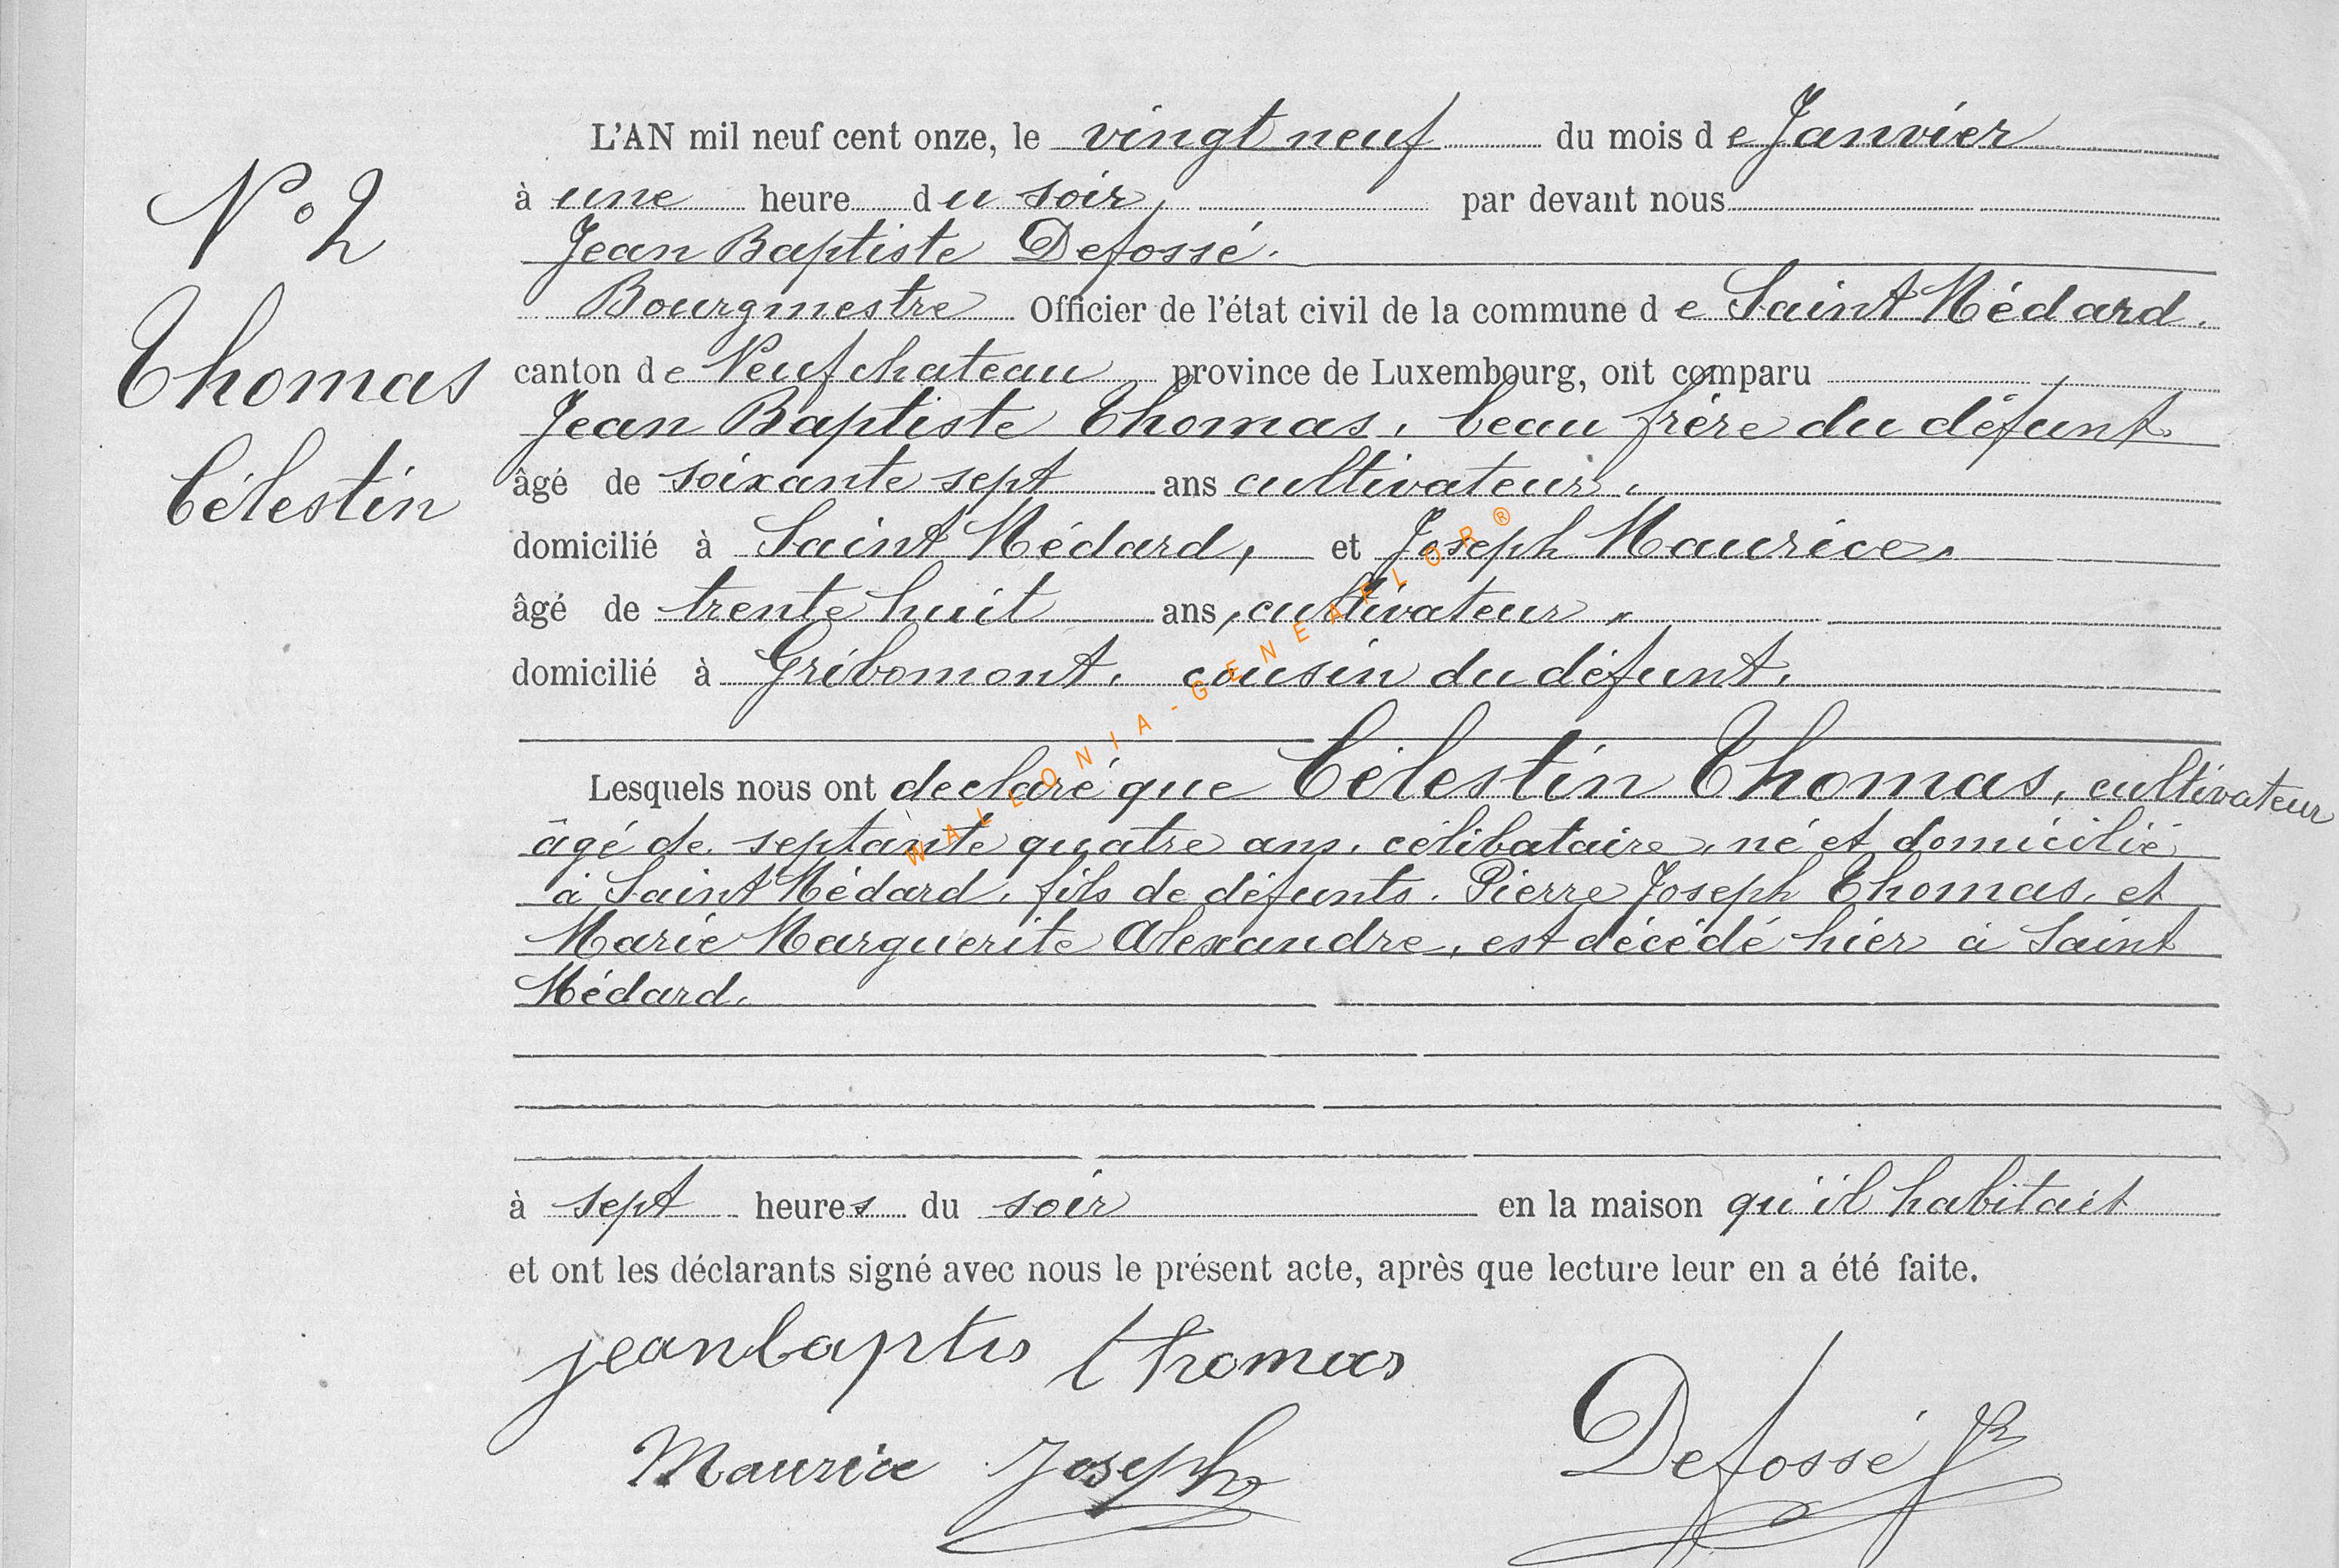 N° 2
Thomas
Célestin
L'AN mil neuf cent onze, le vingt neuf du mois de Janvier
à une heure du soir, par devant nous
Jean Baptiste Defossé.
Bourgmestre Officier de l'état civil de la commune de Saint Médard.
canton de Neufchateau province de Luxembourg, ont comparu
Jean Baptiste Thomas, beau frère du défunt
âgé de soixante sept ans cultivateur,
domicilié à Saint Médard, et Joseph Maurice,
âgé de trente huit ans, cultivateur,
domicilié à Gribomont, cousin du défunt,
Lesquels nous ont declaré que Célestin Thomas, cultivateur
âgé de septante quatre ans, célibataire, né et domicilié
à Saint Médard, fils de défunts. Pierre Joseph Thomas, et
Marie Marguerite Alexandre, est décédé hier à Saint
Médard.
à sept heures du soir en la maison qu'il habitait
et ont les déclarants signé avec nous le présent acte, après que lecture leur en a été faite.
jeanbaptis thomas
Maurice Joseph
Defossé JB
WALLONIA-GENEAFLOR®